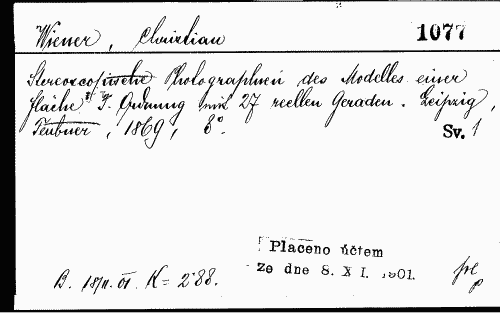 Wiener, Christian 1077
Stereoscopische Photographien des Modelles einer
Fläche 3. Ordnung mit 27 reellen Geraden. Leipzig,
Teubner, 1869, 8°. Sv. 1
Placeno účtem
ze dne 8. XI. 1901.
B. 18/11. 01. K = 2·88.